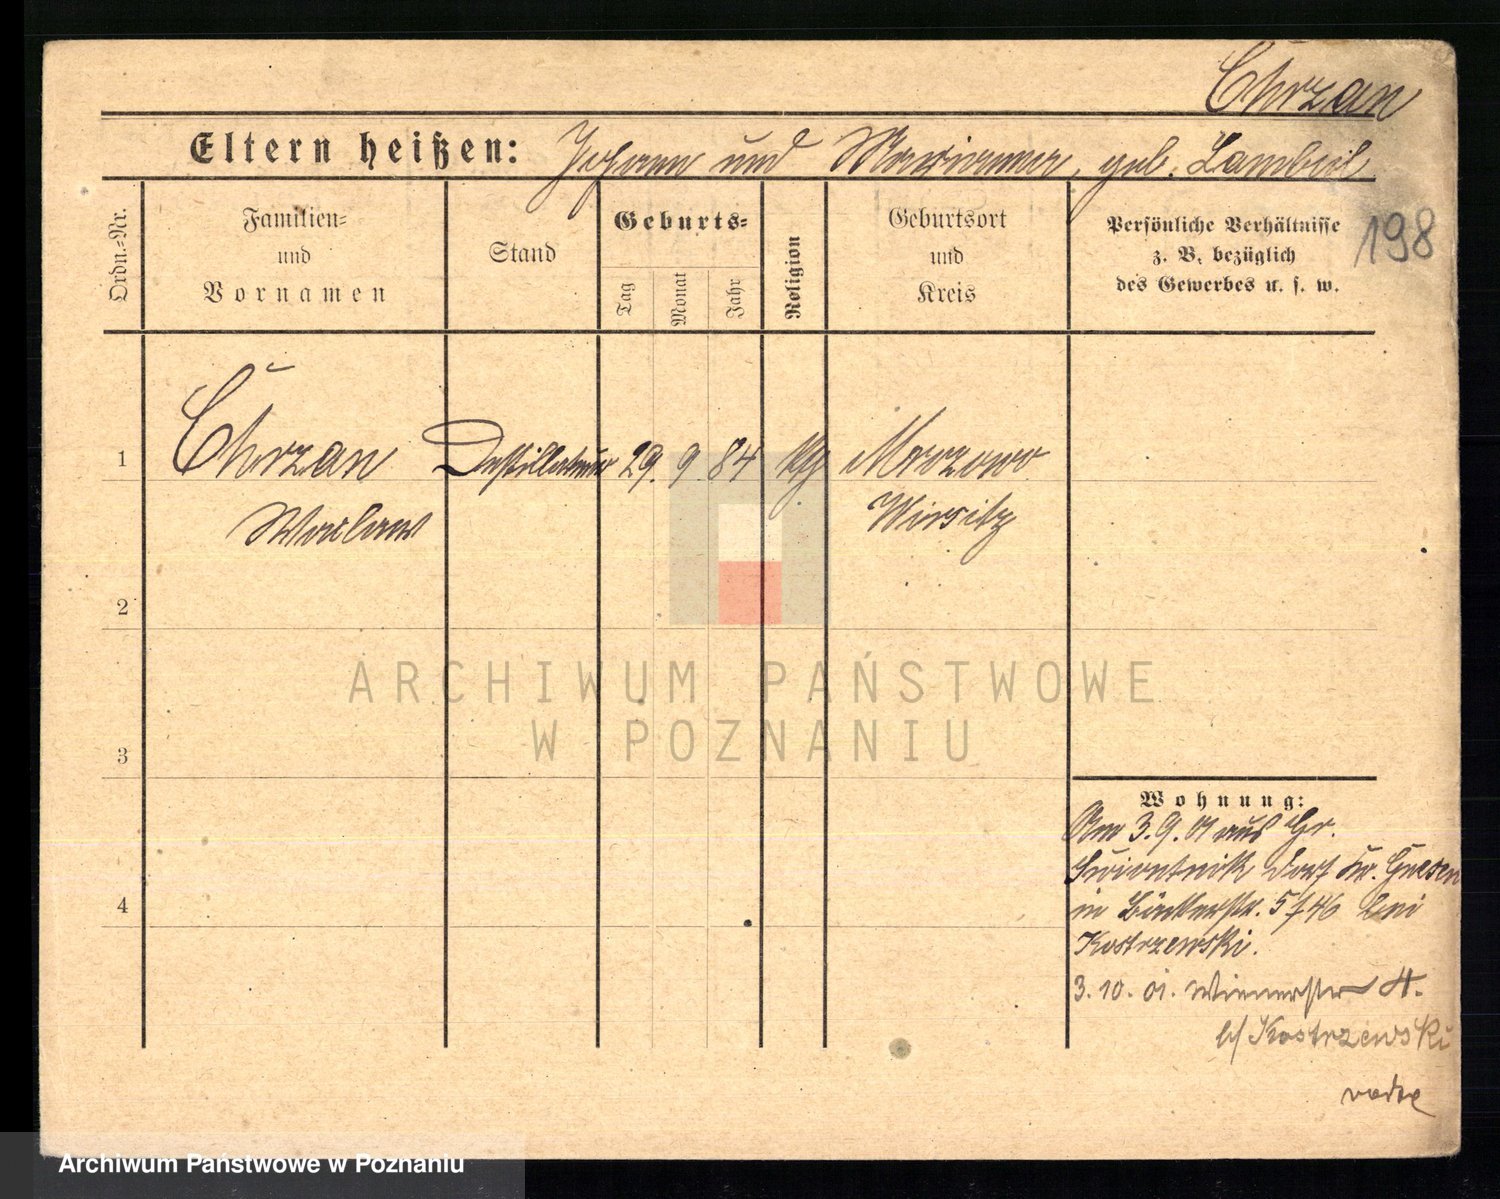 Chrzan
Eltern heißen: Johann und Marianna, geb.
198
Ordn.=Nr.
Familien=
und
Vornamen
Stand
Geburts=
Tag
Monat
Jahr
Religion
Geburtsort
und
Kreis
Persönliche Verhältnisse
z. B. bezüglich
des Gewerbes u. s. w.
1
Chrzan
Waclaw
Destillateur
29. 9. 84
Mrozowo
Wirsitz
2
3
4
Wohnung:
Am 3.9.01 aus Gr.
Swiontnik Dorf Kr. Gnesen
in Bäckerstr. 5/46 bei
Kostrzewski.
3. 10. 01. Wienerstr 4.
b/ Kostrzewski
ARCHIWUM PAŃSTWOWE
W POZNANIU
Archiwum Państwowe w Poznaniu